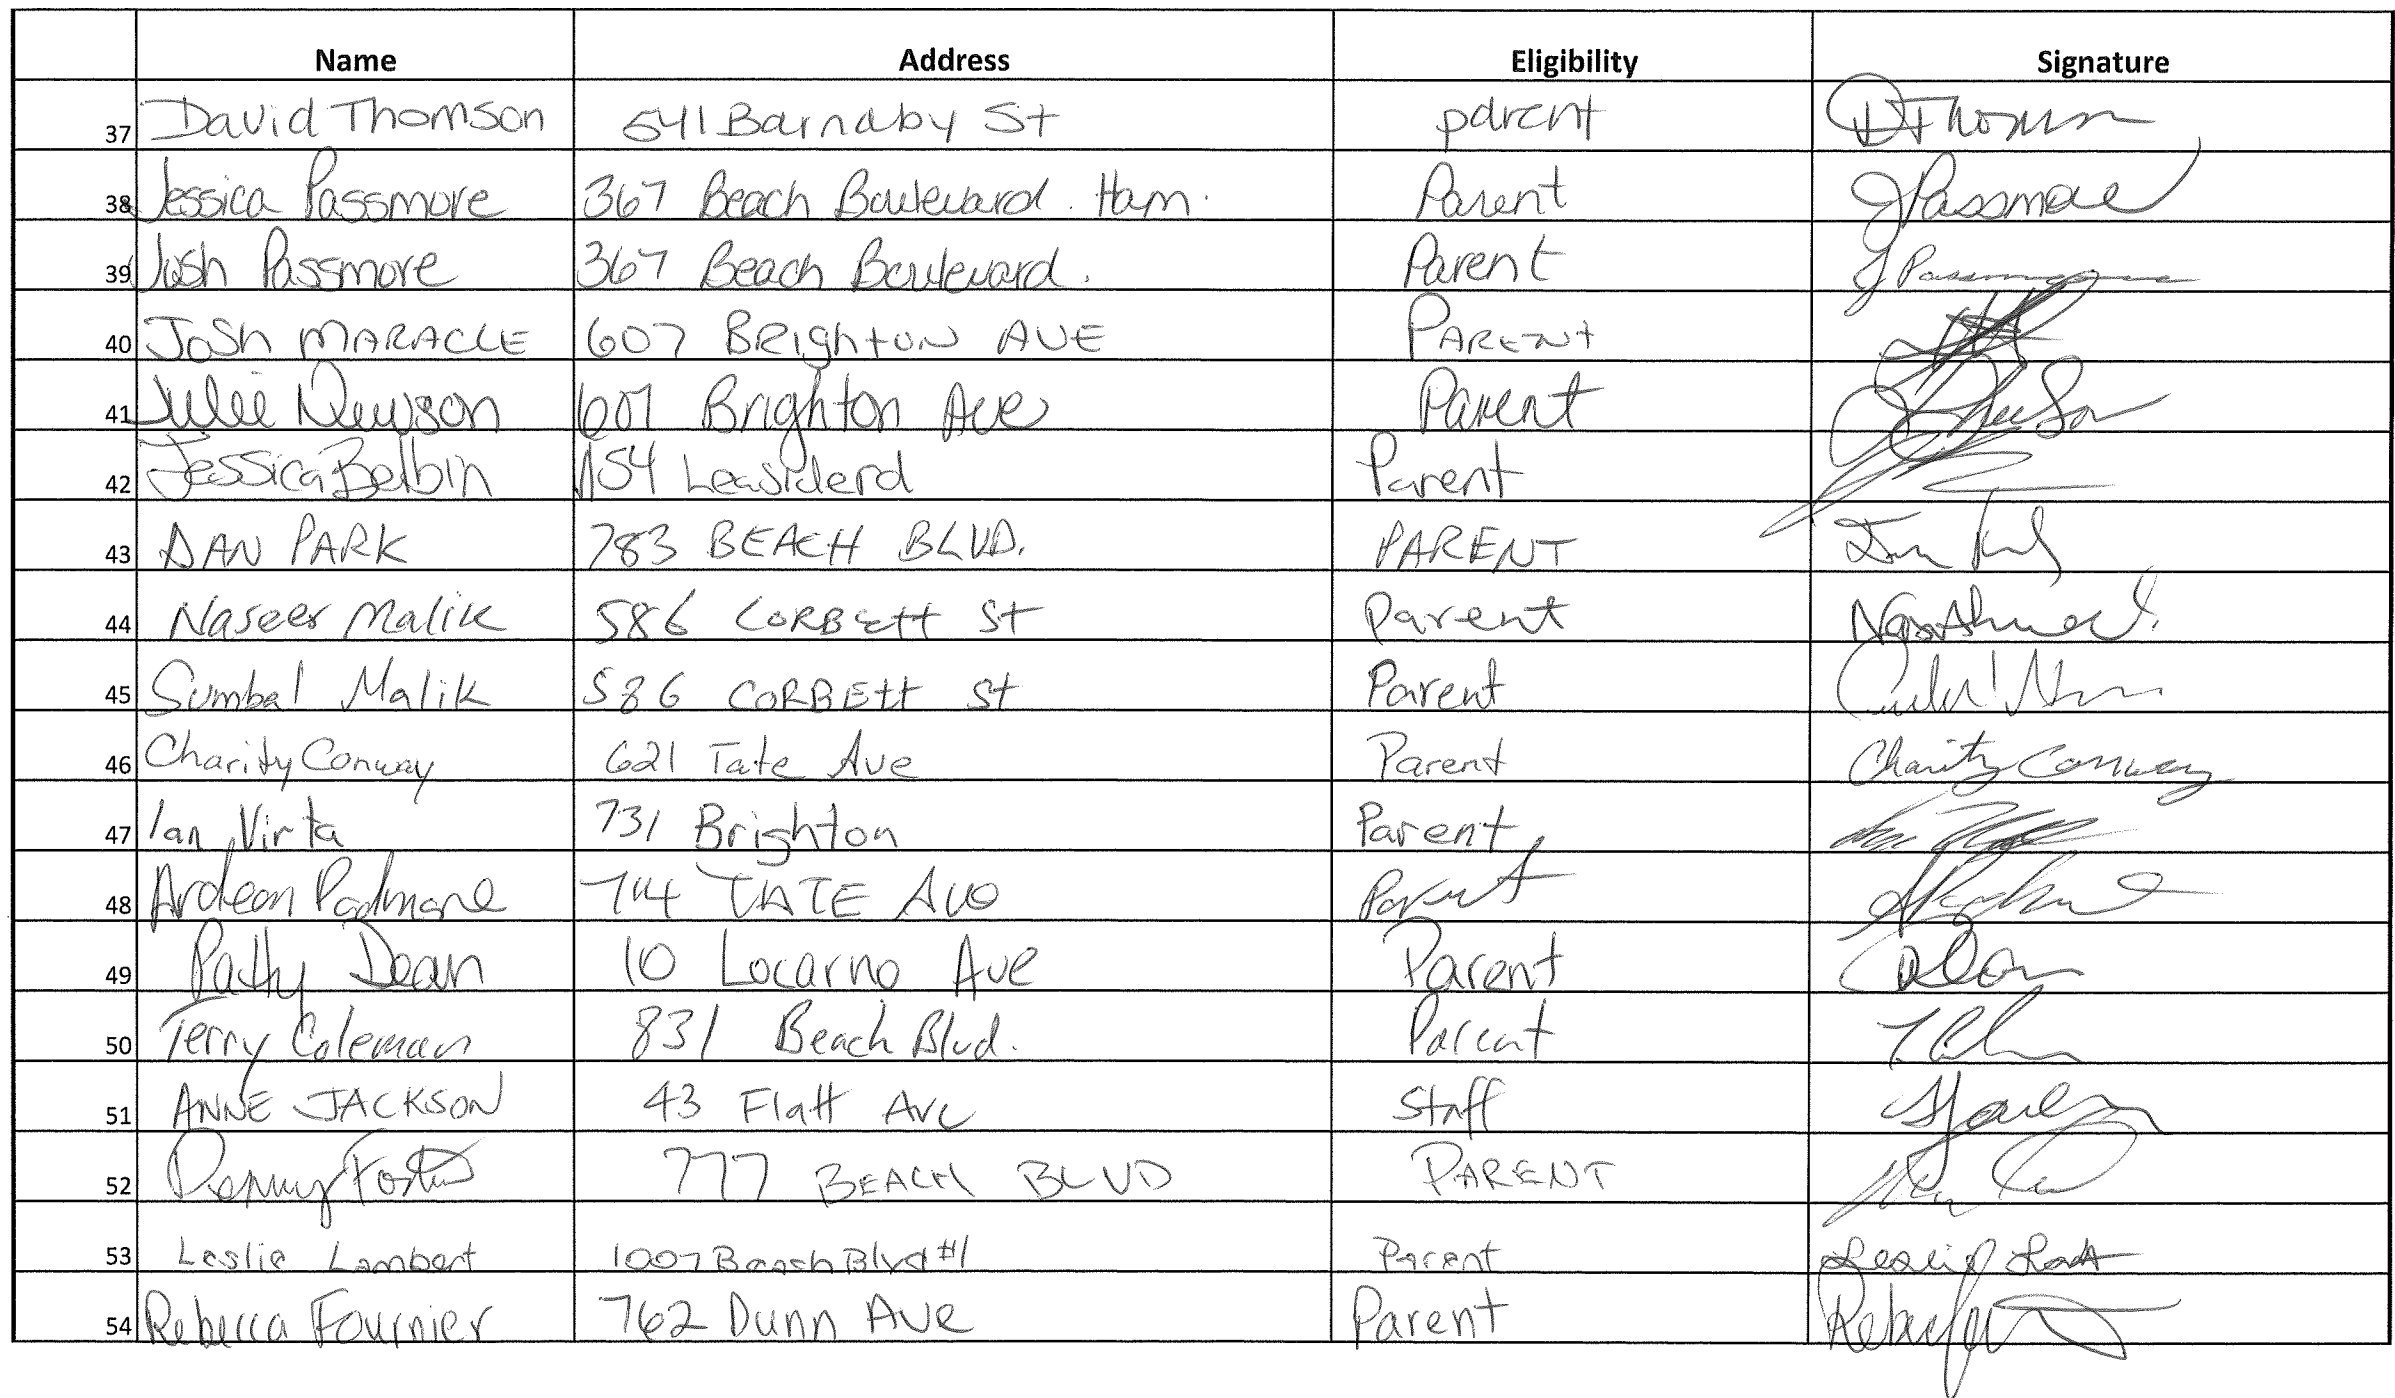 Name Address Eligibility Signature
37 David Thomson 541 Barnaby St parent DThomson
38 Jessica Passmore 367 Beach Boulevard. Ham. Parent JPassmore
39 Josh Passmore 367 Beach Boulevard. Parent J Passmore
40 Josh MARACLE 607 BRIghtON AVE PARENT
41 Julie Newson 607 Brighton Ave Parent
42 Jessica Belbin 154 Leasiderd Parent
43 DAN PARK 783 BEACH BLVD. PARENT
44 Naseer Malik 586 CORBEtt St Parent
45 Sumbal Malik 586 CORBEtt St Parent
46 Charity Conway 621 Tate Ave Parent Charity Conway
47 Ian Virta 731 Brighton Parent
48 Ardean Padmore 714 TATE Ave Parent
49 Patty Dean 10 Locarno Ave Parent
50 Terry Coleman 831 Beach Blvd. Parent
51 ANNE JACKSON 43 Flatt Ave Staff
52 Foster 777 BEACH BLVD PARENT
53 Leslie Lambert 1007 Beach Blvd #1 Parent
54 Rebecca Fournier 762 Dunn Ave Parent